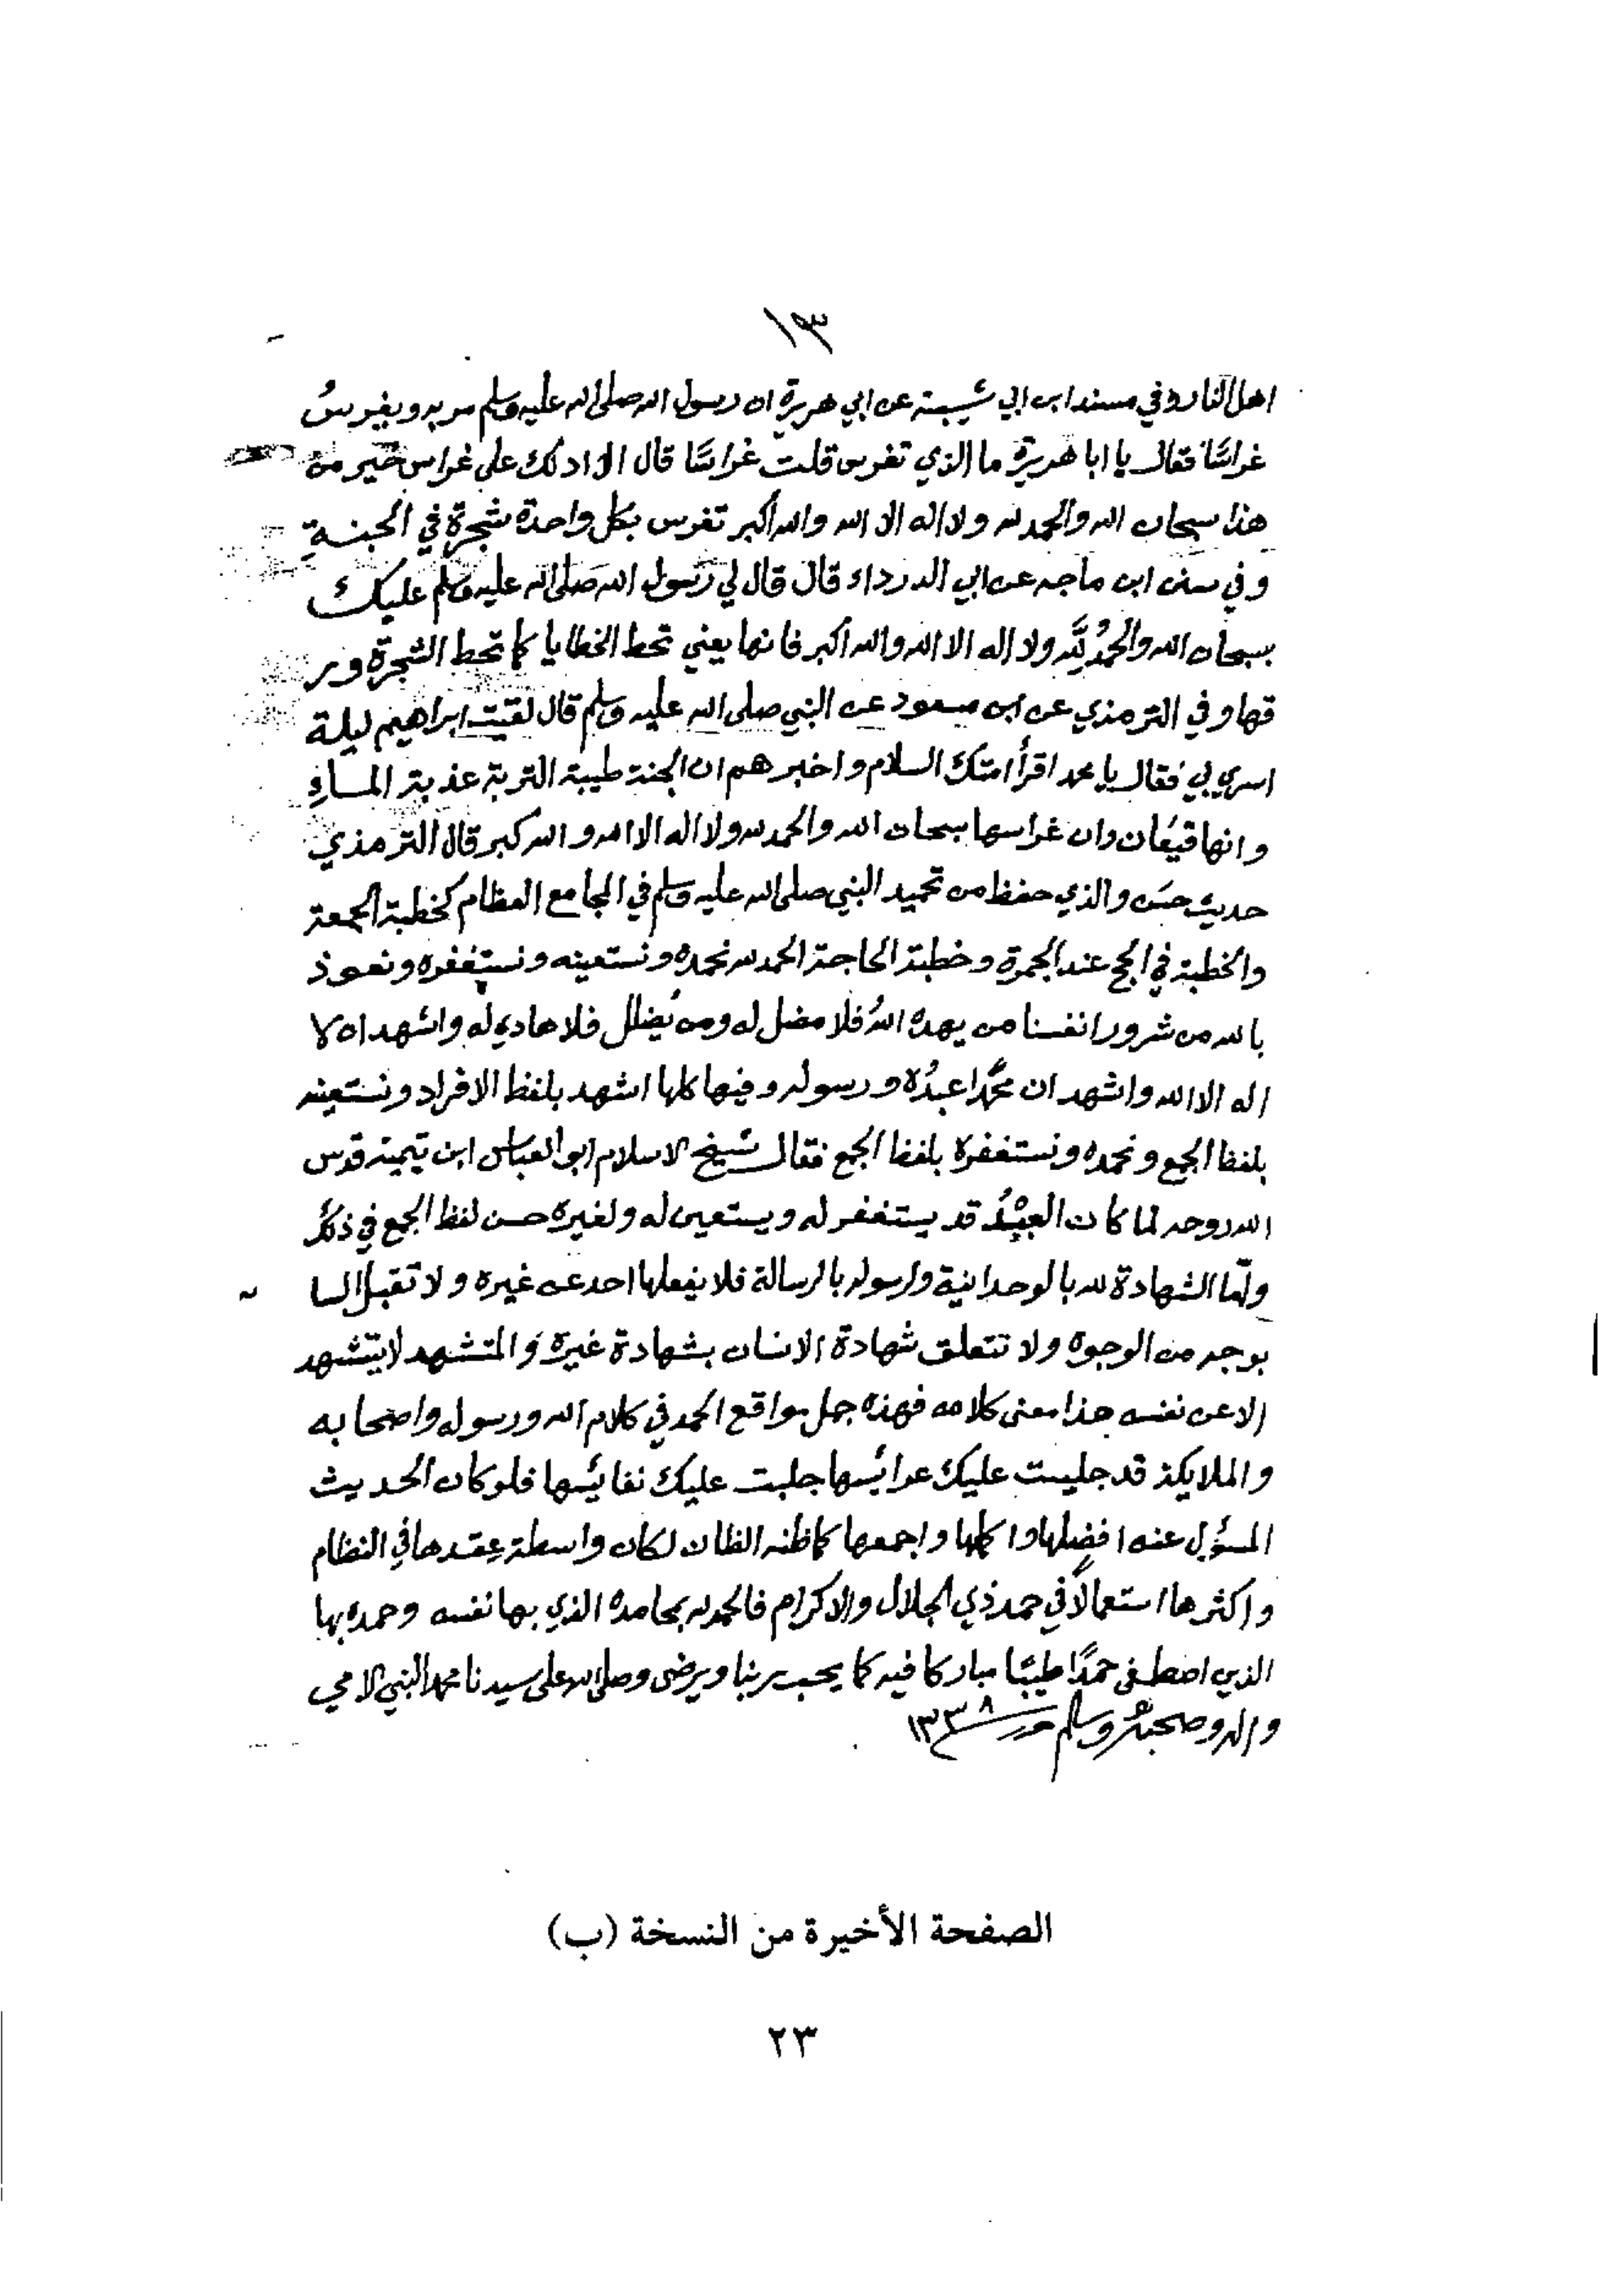 ١٣
اهل النار وفي مسند ابن ابي شيبة عن ابي هريرة ان رسول الله صلى الله عليه وسلم مر به وبغرسُ
غراسًا فقال يا ابا هريرة ما الذي تغرس قلت غراسًا قال الا ادلك على غراس خير من
هذا سبحان الله والحمد لله ولا اله الا الله والله اكبر تغرس بكل واحدة شجرة في الجنةِ
وفي سنن ابن ماجه عن ابي الدرداء قال قال لي رسول الله صلى الله عليه وسلم عليك
بسبحان الله والحمدُ للَّه ولا اله الا الله والله اكبر فانها يعني تحط الخطايا كما تحط الشجرة ور
قها وفي الترمذي عن ابن مسعود عن النبي صلى الله عليه وسلم قال لقيت ابراهيم ليلة
اسري بي فقال يا محمد اقرأ امتك السلام واخبرهم ان الجنة طيبة التربة عذبة الماءِ
وانها قيعَان وان غراسها سبحان الله والحمد لله ولا اله الا الله والله كبر قال الترمذي
حديث حسَن والذي حفظ من تحميد النبي صلى الله عليه وسلم في المجامع العظام كخطبة الجمعة
والخطبة في الحج عند الجمرة وخطبة الحاجة الحمد لله نحمده ونستعينه ونستغفره ونعوذ
بالله من شرور انفسنا من يهده اللهُ فلا مضل له ومن يُضلل فلا هادي له واشهد ان لا
اله الا الله واشهد ان محمَّدا عبدُه ورسوله وفيها كلها اشهد بلفظ الافراد ونستعينه
بلفظ الجمع ونحمده ونستغفره بلفظ الجمع فقال شيخ الاسلام ابو العباس ابن تيمية قدس
الله روحه لما كان العبْدُ قد يستغفر له ويستعين له ولغيره حسن لفظ الجمع في ذلكَ
ولمّا الشهادة لله بالوحدانية ولرسوله بالرسالة فلا يفعلها احد عن غيره ولا تقبل السا
بوجه من الوجوه ولا تتعلق شهادة الانسان بشهادة غيره والمتشهد لا يتشهد
الا عن نفسه هذا معنى كلامه فهذه جمل مواقع الحمد في كلام الله ورسوله واصحابه
والملايكة قد جليت عليك عرائسها جلبت عليك نفائسها فلو كان الحديث
المسؤل عنه افضلها واكملها واجمعها كما ظنه الظان لكان واسطة عِقدها في النظام
واكثرها استعمالًا في حمد ذي الجلال والاكرام فالحمد لله بمحامده الذي بها نفسه وحمده بها
الذين اصطفى حمدًا طيبًا مباركا فيه كما يحب ربنا ويرضى وصلى الله على سيدنا محمد النبي الامي
واله وصحبه وسلم ١٣٣٨
الصفحة الأخيرة من النسخة (ب)
٢٣